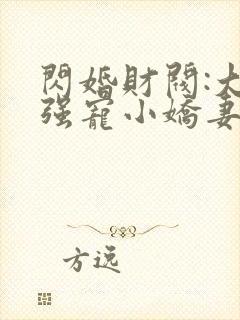 閃婚財閥:大
强寵小嬌妻
方逸